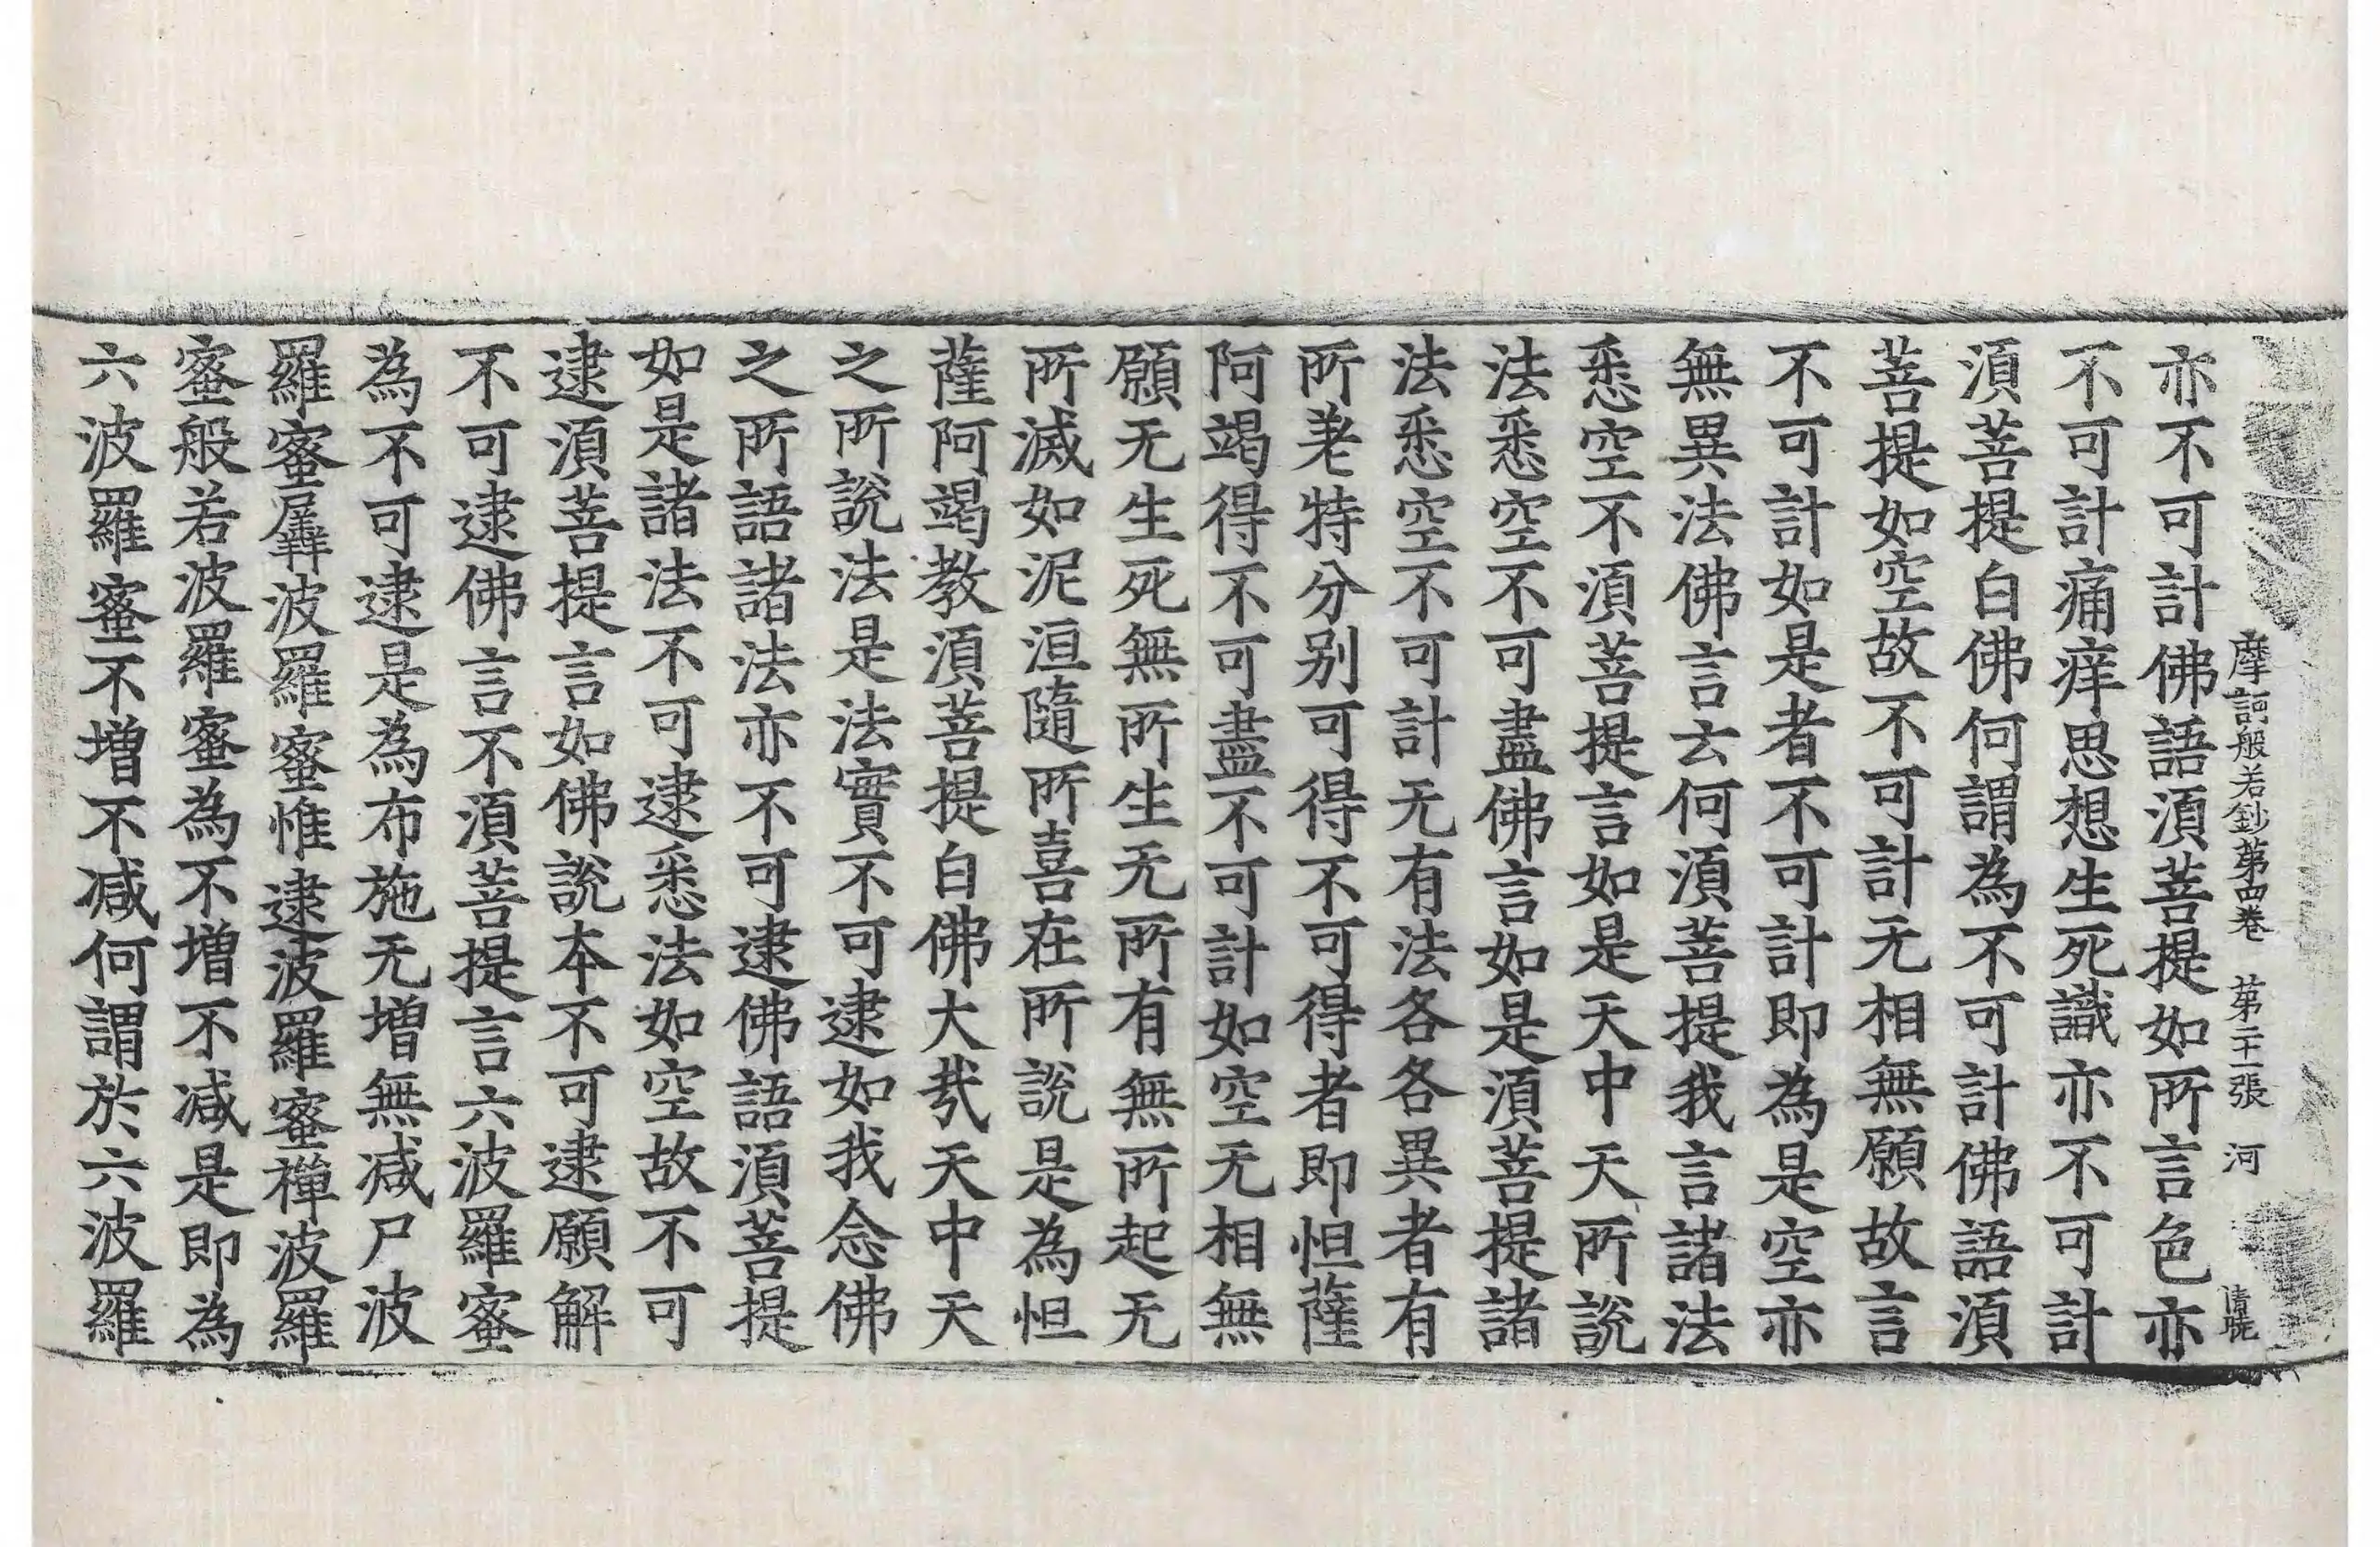 摩訶般若鈔第四卷　第二十一張　河
亦不可計佛語須菩提如所言色亦
不可計痛痒思想生死識亦不可計
須菩提白佛何謂為不可計佛語須
菩提如空故不可計无相無願故言
不可計如是者不可計即為是空亦
無異法佛言云何須菩提我言諸法
悉空不須菩提言如是天中天所說
法悉空不可盡佛言如是須菩提諸
法悉空不可計无有法各各異者有
所差特分別可得不可得者即怛薩
阿竭得不可盡不可計如空无相無
願无生死無所生无所有無所起无
所滅如泥洹隨所喜在所說是為怛
薩阿竭教須菩提白佛大哉天中天
之所說法是法實不可逮如我念佛
之所語諸法亦不可逮佛語須菩提
如是諸法不可逮悉法如空故不可
逮須菩提言如佛說本不可逮願解
不可逮佛言不須菩提言六波羅蜜
為不可逮是為布施无增無減尸波
羅蜜羼波羅蜜惟逮波羅蜜禪波羅
蜜般若波羅蜜為不增不減是即為
六波羅蜜不增不減何謂於六波羅